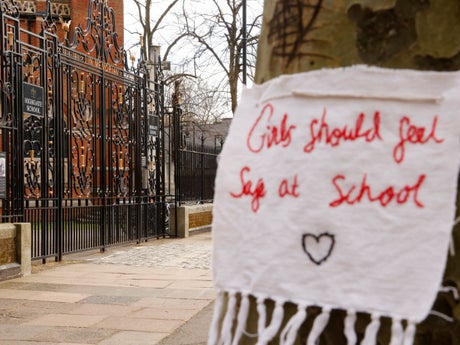 HIGHGATE
SCHOOL
Girls should feel
Safe at School